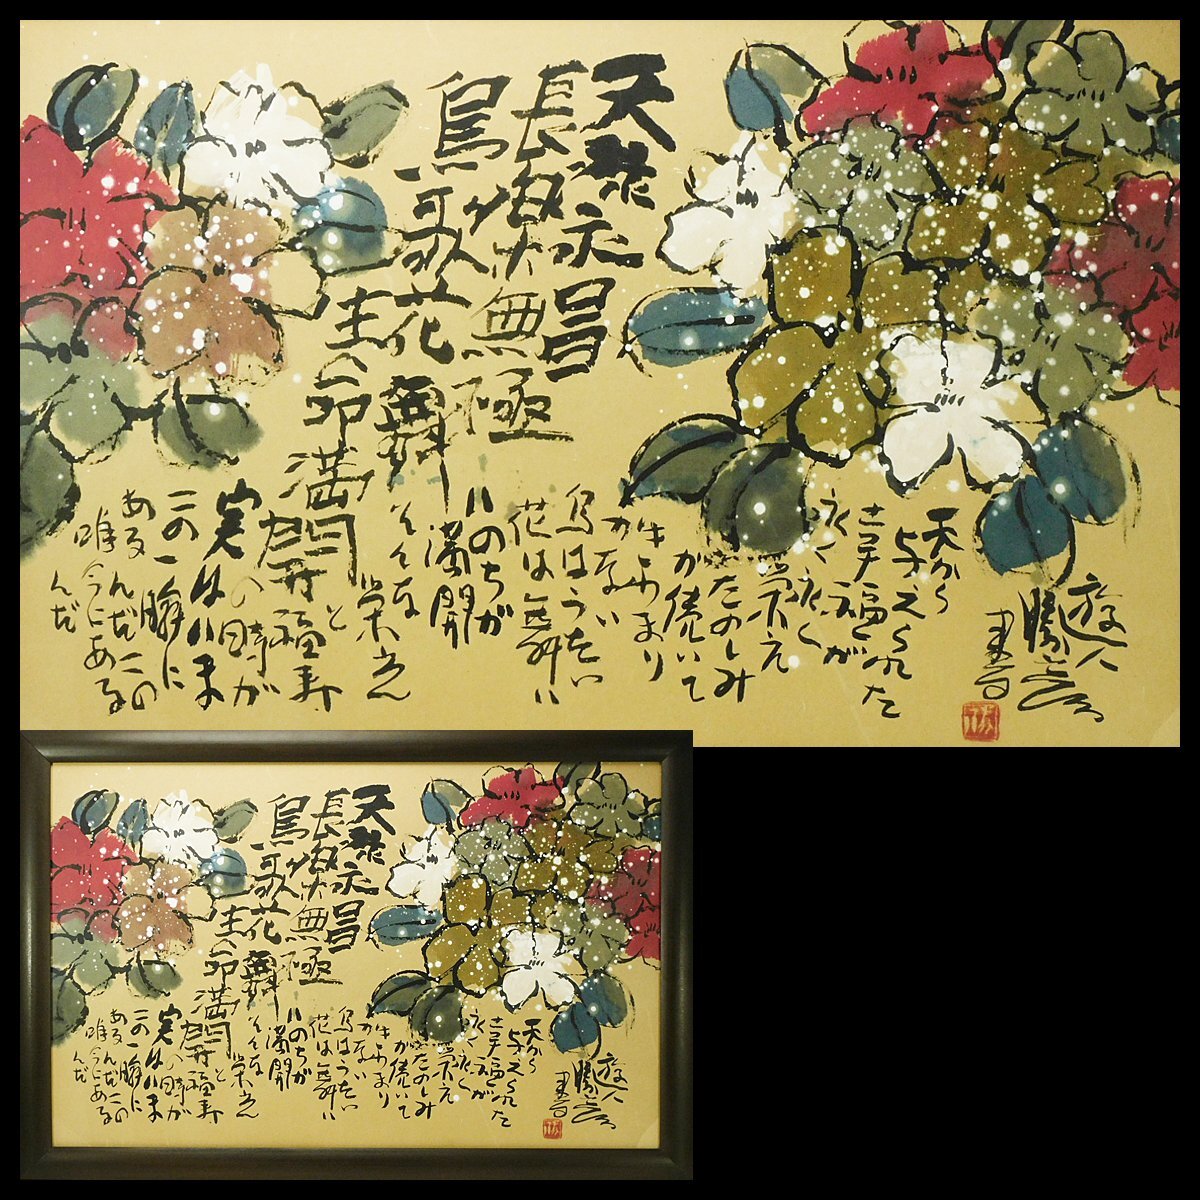 天禄永昌
長楽無極
鳥歌花舞
生命満開
天から
与えられた
幸福が
永く永く
栄え
たのしみ
が続いて
きわまり
がない
鳥はうたい
花は舞い
いのちが
満開
そんな
栄光
と
福寿
の時が
実はいま
この一瞬に
あるんだこの
唯今にある
んだ
遊人